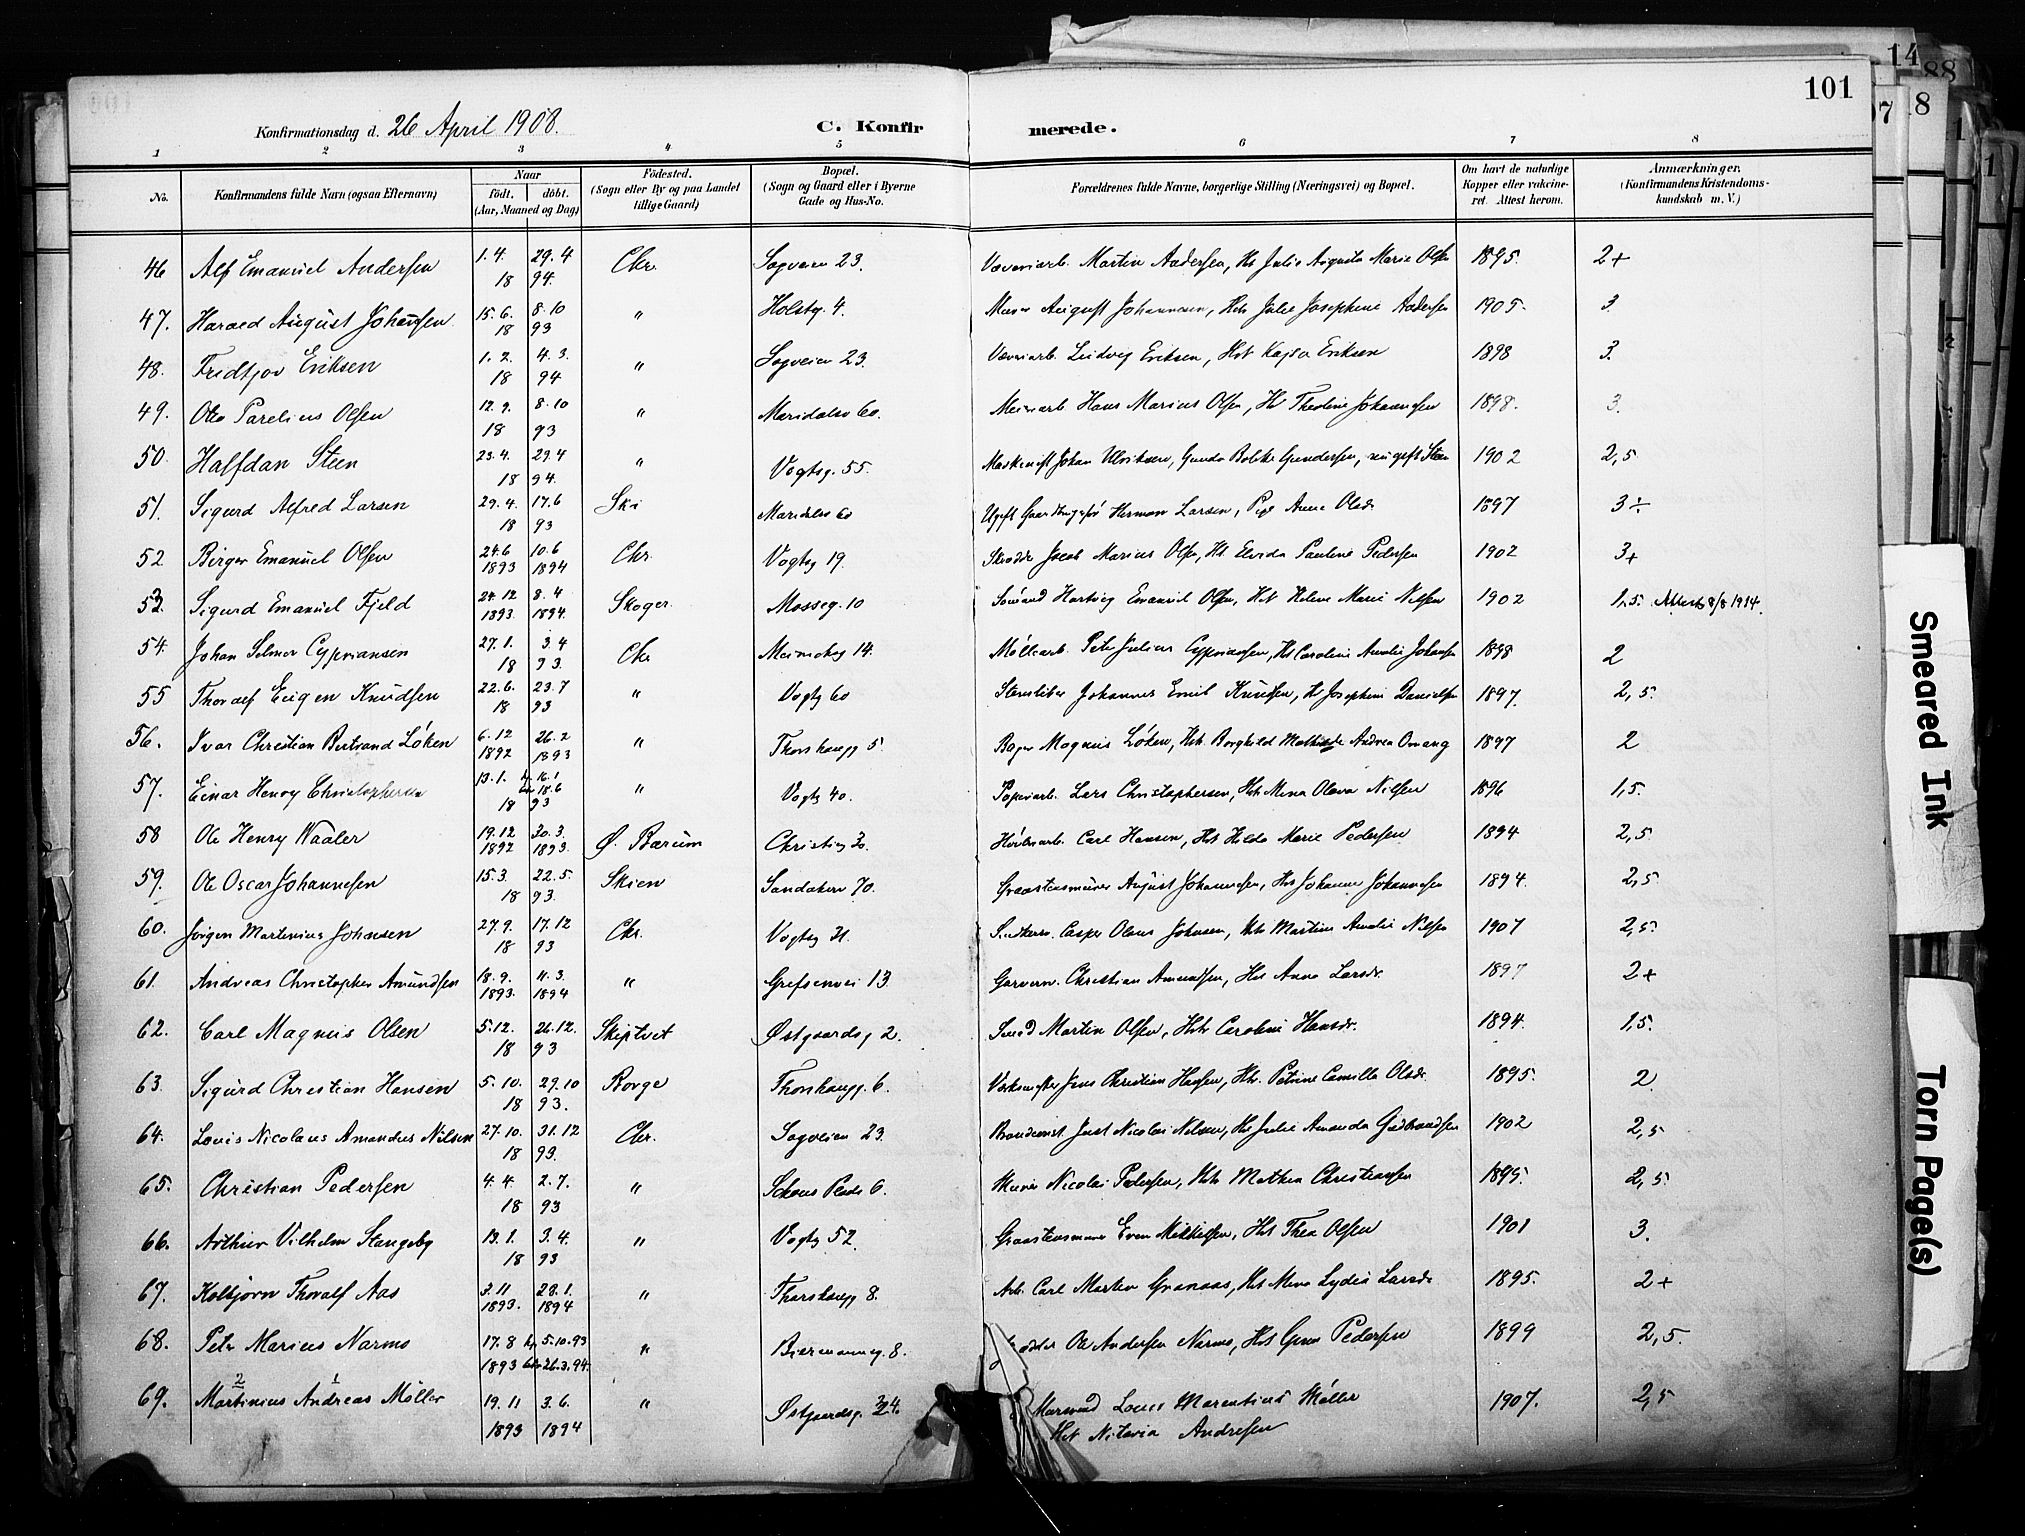 101
14
88
18
07
1
1
Konfirmationsdag d. 26 April 1908.
C. Konfirmerede.
1 2 3 4 5 6 7 8
No.
Konfirmandens fulde Navn (ogsaa Efternavn)
Naar
født. døbt.
(Aar, Maaned og Dag)
Fødested.
(Sogn eller By og paa Landet
tillige Gaard)
Bopæl.
(Sogn og Gaard eller i Byerne
Gade og Hus-No.
Forældrenes fulde Navne, borgerlige Stilling (Næringsvei) og Bopæl.
Om havt de naturlige
Kopper eller vaccine-
ret. Attest herom.
Anmærkninger.
(Konfirmandens Kristendoms-
kundskab m. V.)
46 Alf Emanuel Andersen 1.4. 29.4 Chr. Sagveien 23. Væveriarb. Martin Andersen, Hst Julie Augusta Marie Olsen 1895. 2+
18 94.
47. Harald August Johansen 15.6. 8.10 " Holstg. 4. Murer August Johannesen, Hst Julie Josephine Andersen 1905. 3
18 93
48. Fridtjov Eriksen 1.2. 4.3. " Sagveien 23. Væveriarb. Ludvig Eriksen, Hst Kajsa Eriksen 1898 3.
18 94
49. Otto Parelius Olsen 12.9. 8.10 " Maridalsv 60. Hans Marius Olsen, Hst Theoline Johannesen 1898. 3.
18 93
50. Halfdan Steen 23.4. 29.4 " Vogtsg. 55. Johan Ulriksen, Gunda Bolette Gundersen, nu gift Steen 1902 2,5
18 94.
51. Sigurd Alfred Larsen 29.4. 17.6 Ski Maridalsv 60 Ugift Herman Larsen, Pige Anne Olsdr 1897 3÷
18 93
52 Birger Emanuel Olsen 24.6 10.6 Chr. Vogtsg 19. Skrædder Jacob Marius Olsen, Hst Elvida Pauline Pedersen 1902 3+
1893 1894
53. Sigurd Emanuel Fjeld 24.12 8.4 Skoger Mosseg. 10 Sømand Hartvig Emanuel Olsen, Hst Helene Marie Nilsen 1902 1,5. Attest 8/8 1914.
1893. 1894.
54. Johan Selmer Cypriansen 27.1. 3.4 Chr. 14. Møllearb. Peter Julius Cypriansen, Hst Caroline Amalie Johansen 1898 2
18 93.
55 Thoralf Eugen Knudsen 22.6. 23.7 " Vogtsg 60 Stensliber Johannes Emil Knudsen, Hst Josephine Danielsen 1897. 2,5.
18 93
56. Ivar Christian Bertrand Løken 6.12 26.2 " Thorshaugg 5. Bager Magnus Løken, Hst. Borghild Mathilde Andrea Omang 1897 2
1892 1893
57. Einar Henry Christophersen 13.1. 16.1 " Vogtsg 40. Papirarb. Lars Christophersen, Hst. Mina Olava Nilsen 1896 1,5.
18.6
18 93
58 Ole Henry Waaler 19.12 30.3. Ø. Bærum Christiesg 30. Carl Hansen, Hst Hilda Marie Pedersen 1894 2,5
1892 1893.
59. Ole Oscar Johannesen 15.3. 22.5. Skien Sandakerv 70. Graastensmurer August Johannesen, Hst Johanne Johannesen 1894. 2,5
18 93.
60. Jørgen Martinius Johansen 27.9. 17.12 Chr. Vogtsg 31. Casper Olaus Johansen, Hst Martine Amalie Nilsen 1907 2,5
18 93
61. Andreas Christopher Amundsen 18.9. 11.3. " Grefsenvei 13. Garvern. Christian Amundsen, Hst Anna Larsdr. 1897 2+
1893. 1894
62. Carl Magnus Olsen 5.12. 26.12. Skiptvet Østgaardsg 2. Smed Martin Olsen, Hst Caroline Hansdr. 1894. 1,5.
18 93
63. Sigurd Christian Hansen 5.10. 29.10 Borge Thorshaugg. 6. Værksmester Jens Christian Hansen, Hst. Petrine Camilla Olsdr. 1895. 2.
18 93.
64. Louis Nicolaus Amandus Nilsen 27.10. 31.12 Chr. Sagveien 23. Brandconst. Just Nicolai Nilsen, Hst Julie Amanda Gudbrandsen 1902 2,5
18 93.
65. Christian Pedersen 4.4. 2.7. " Schous Plads 6. Murer Nicolai Pedersen, Hst Mathea Christiansen 1895. 2,5.
18 93
66. Arthur Vilhelm Stangeby 13.1. 3.4. " Vogtsg 52. Graastensmurer Even Mikkelsen, Hst Thea Olsen 1901 3.
18 93
67. Kolbjørn Thoralf Aas 3.11 28.1. " Thorshaugg 8. Arb. Carl Martin Granaas, Hst Mina Lydia Larsdr 1895. 2+
1893. 1894
68. Peter Marius Narmo 17.8 5.10.93 " Biermannsg. 8. Ole Andersen Narmo, Hst Pedersen 1899 2,5
1893 26.3.94.
2 1
69. Martinius Andreas Møller 19.11 3.6. " Østgaardsg. 24. Louis Marentius Møller 1907. 2,5
1893 1894 Hst Nitavia Andresen
Smeared Ink
Torn Page(s)